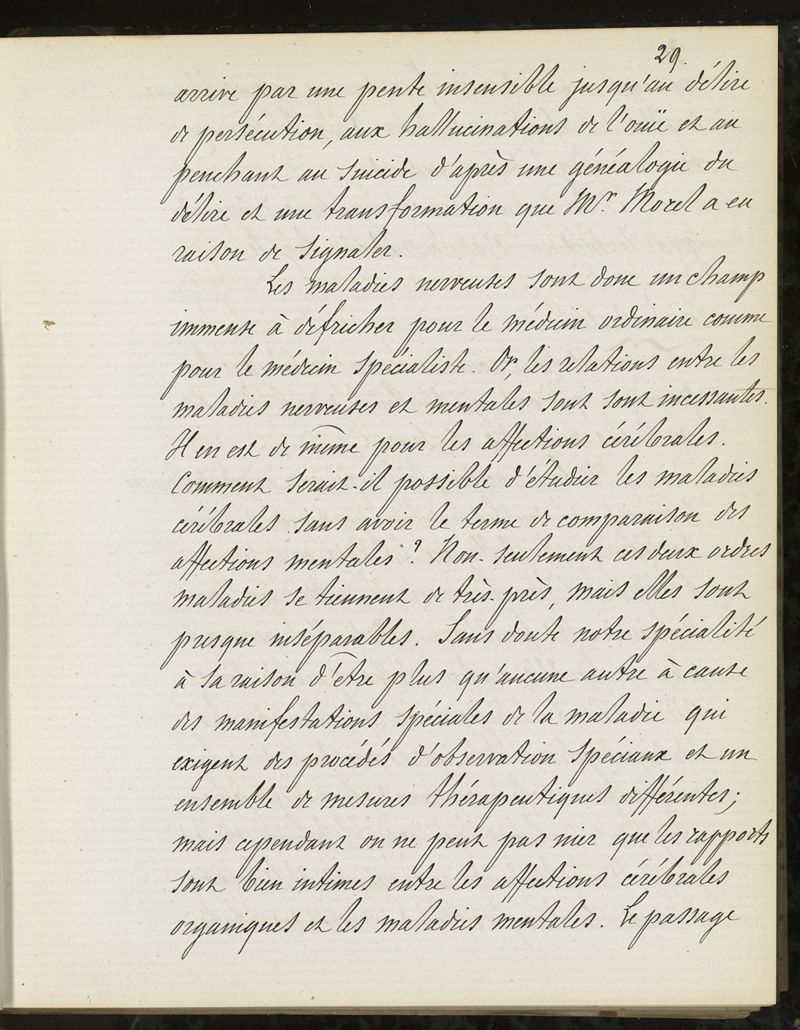 29.
arrive par une pente insensible jusqu'au délire
de persécution, aux hallucinations de l'ouïe et au
penchant au suicide d'après une généalogie du
délire et une transformation que Mr. Morel a eu
raison de signaler.
Les maladies nerveuses sont donc un champ
immense à défricher pour le médecin ordinaire comme
pour le médecin spécialiste. Or, les relations entre les
maladies nerveuses et mentales sont sont incessantes.
Il en est de même pour les affections cérébrales.
Comment serait-il possible d'étudier les maladies
cérébrales sans avoir le terme de comparaison des
affections mentales ? Non-seulement ces deux ordres
maladies se tiennent de très-près, mais elles sont
presque inséparables. Sans doute notre spécialité
à sa raison d'être plus qu'aucune autre à cause
des manifestations spéciales de la maladie qui
exigent des procédés d'observation spéciaux et un
ensemble de mesures thérapeutiques différentes;
mais cependant on ne peut pas nier que les rapports
sont bien intimes entre les affections cérébrales
organiques et les maladies mentales. Le passage